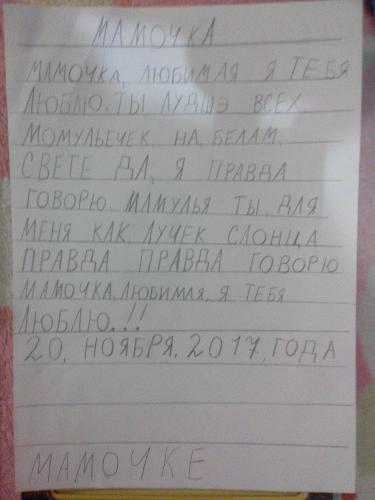 МАМОЧКА
МАМОЧКА, ЛЮБИМАЯ Я ТЕБЯ
ЛЮБЛЮ. ТЫ ЛУДШЭ ВСЕХ.
МОМУЛЬЕЧЕК НА, БЕЛАМ,
СВЕТЕ ДА, Я ПРАВДА
ГОВОРЮ. МАМУЛЬЯ ТЫ, ДЛЯ
МЕНЯ КАК, ЛУЧЕК СЛОНЦА
ПРАВДА ПРАВДА ГОВОРЮ
МАМОЧКА, ЛЮБИМАЯ, Я ТЕБЯ
ЛЮБЛЮ.!!
20, НОЯБРЯ, 2017, ГОДА
МАМОЧКЕ